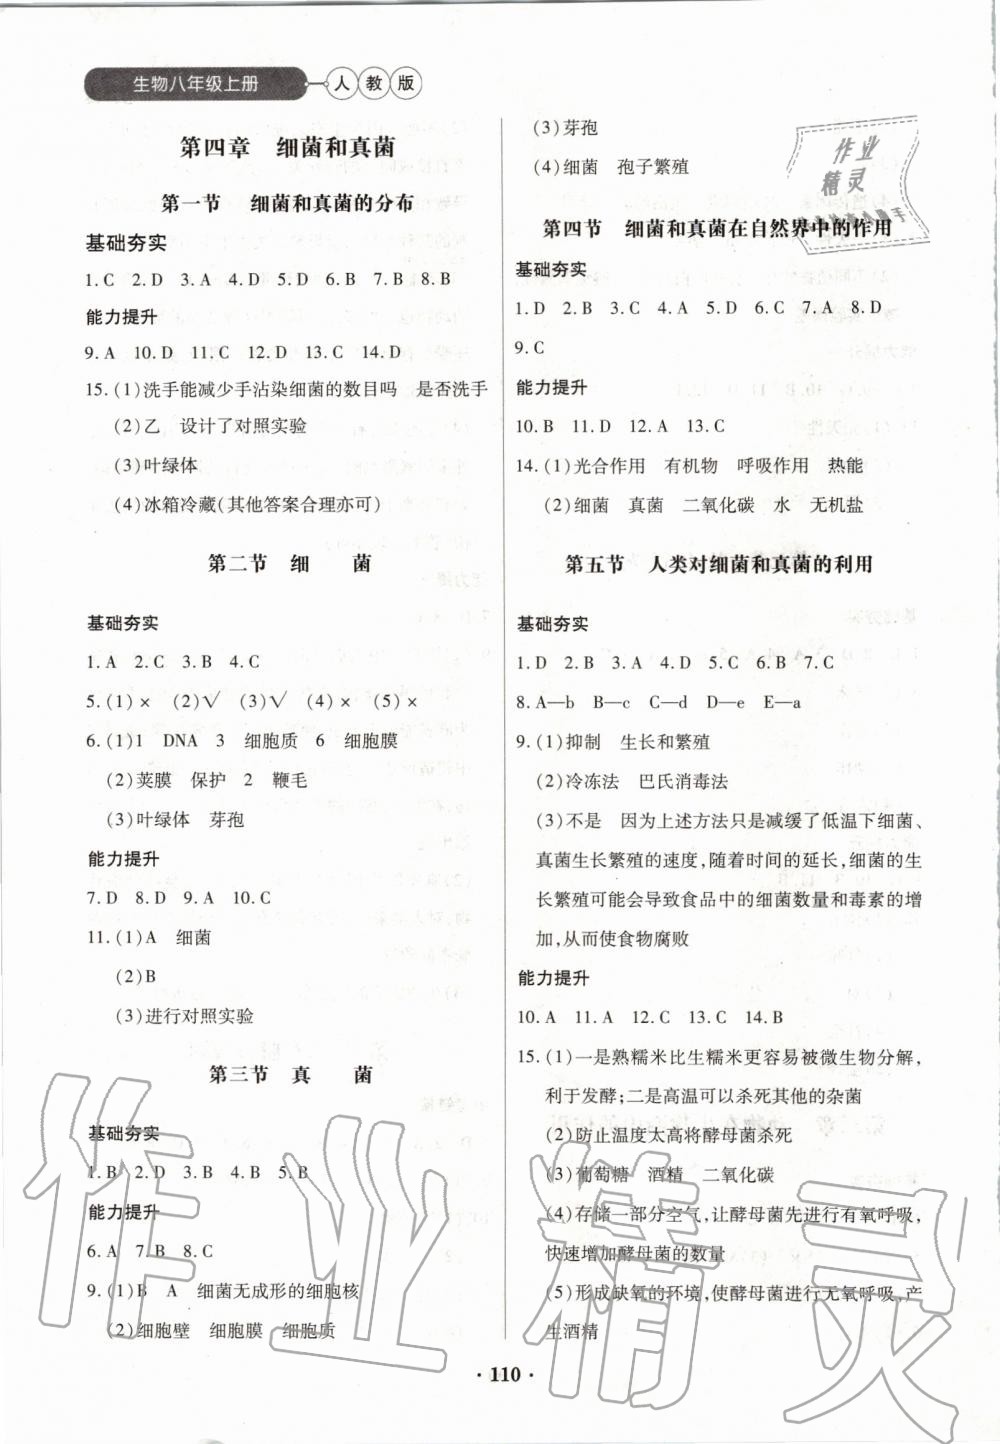 生物八年级上册 人教版
第四章 细菌和真菌
第一节 细菌和真菌的分布
基础夯实
1.C 2.D 3.A 4.D 5.D 6.B 7.B 8.B
能力提升
9.A 10.D 11.C 12.D 13.C 14.D
15.(1)洗手能减少手沾染细菌的数目吗 是否洗手
(2)乙 设计了对照实验
(3)叶绿体
(4)冰箱冷藏(其他答案合理亦可)
第二节 细 菌
基础夯实
1.A 2.C 3.B 4.C
5.(1)× (2)√ (3)√ (4)× (5)×
6.(1)1 DNA 3 细胞质 6 细胞膜
(2)荚膜 保护 2 鞭毛
(3)叶绿体 芽孢
能力提升
7.D 8.D 9.A 10.C
11.(1)A 细菌
(2)B
(3)进行对照实验
第三节 真 菌
基础夯实
1.B 2.D 3.B 4.B 5.B
能力提升
6.A 7.B 8.C
9.(1)B A 细菌无成形的细胞核
(2)细胞壁 细胞膜 细胞质
(3)芽孢
(4)细菌 孢子繁殖
第四节 细菌和真菌在自然界中的作用
基础夯实
1.D 2.B 3.C 4.A 5.D 6.C 7.A 8.D
9.C
能力提升
10.B 11.D 12.A 13.C
14.(1)光合作用 有机物 呼吸作用 热能
(2)细菌 真菌 二氧化碳 水 无机盐
第五节 人类对细菌和真菌的利用
基础夯实
1.D 2.B 3.A 4.D 5.C 6.B 7.C
8.A—b B—c C—d D—e E—a
9.(1)抑制 生长和繁殖
(2)冷冻法 巴氏消毒法
(3)不是 因为上述方法只是减缓了低温下细菌、
真菌生长繁殖的速度,随着时间的延长,细菌的生
长繁殖可能会导致食品中的细菌数量和毒素的增
加,从而使食物腐败
能力提升
10.A 11.A 12.C 13.C 14.B
15.(1)一是熟糯米比生糯米更容易被微生物分解,
利于发酵;二是高温可以杀死其他的杂菌
(2)防止温度太高将酵母菌杀死
(3)葡萄糖 酒精 二氧化碳
(4)存储一部分空气,让酵母菌先进行有氧呼吸,
快速增加酵母菌的数量
(5)形成缺氧的环境,使酵母菌进行无氧呼吸,产
生酒精
·110·
作业
精灵
作业精灵